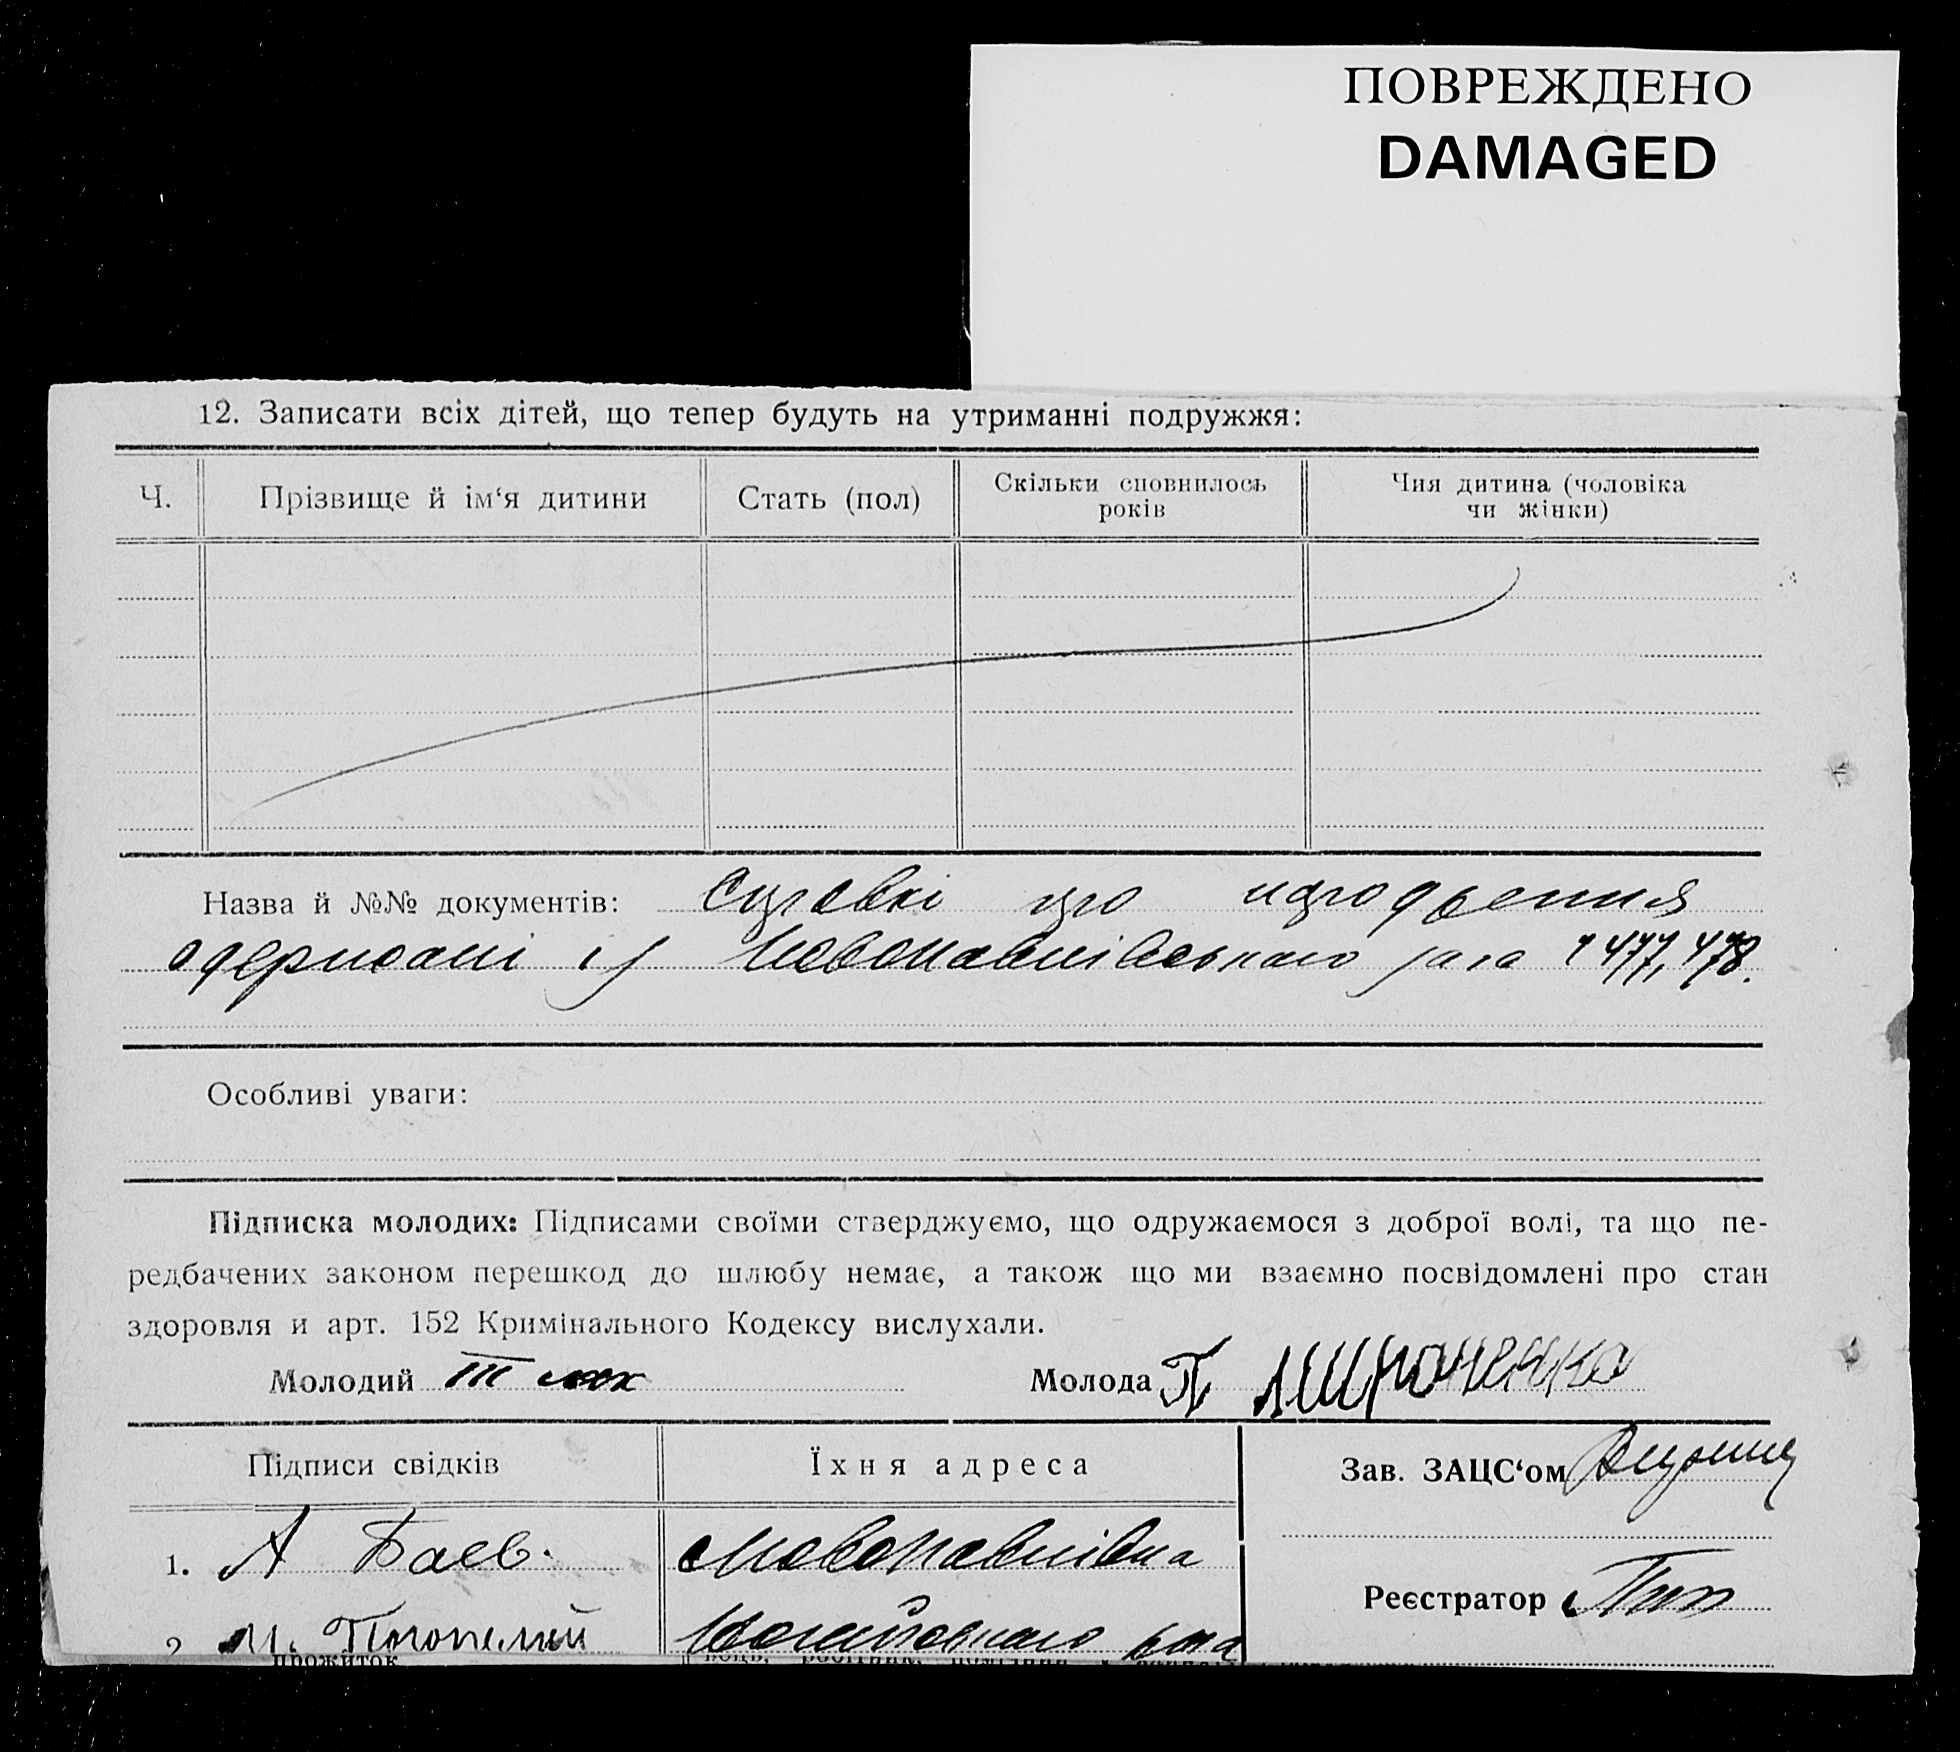 ПОВРЕЖДЕНО
DAMAGED
12. Записати всіх дітей, що тепер будуть на утриманні подружжя:
Ч.
Прізвище й ім‘я дитини
Стать (пол)
Скільки сповнилось
років
Чия дитина (чоловіка
чи жінки)
Назва й №№ документів:
одержані із Новопавлівського 477, 478.
Особливі уваги:
Підписка молодих: Підписами своїми стверджуємо, що одружаємося з доброї волі, та що пе-
редбачених законом перешкод до шлюбу немає, а також що ми взаємно посвідомлені про стан
здоровля и арт. 152 Кримінального Кодексу вислухали.
Молодий
Молода П
Підписи свідків
Їхня адреса
Зав. ЗАЦС‘ом
1. А Баев. Новопавлівка
Реєстратор
2 М.
прожиток